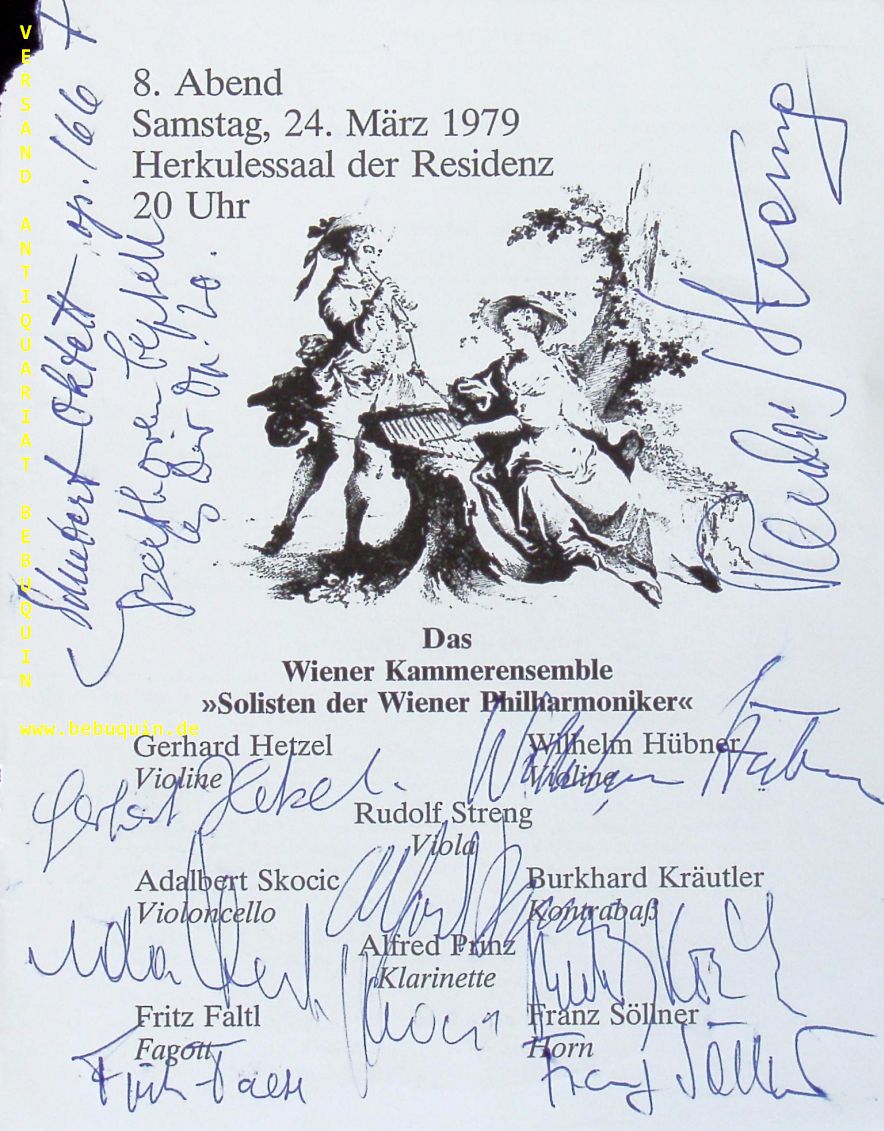 VERSAND ANTIQUARIAT BEBUQUIN
www.bebuquin.de
Schubert Oktett op. 166
Beethoven Septett
Es Dur Op. 20.
8. Abend
Samstag, 24. März 1979
Herkulessaal der Residenz
20 Uhr
Rudolf Streng
Das
Wiener Kammerensemble
»Solisten der Wiener Philharmoniker«
Gerhard Hetzel
Violine
Wilhelm Hübner
Violine
Gerhard Hetzel.
Wilhelm Hübner
Rudolf Streng
Viola
Adalbert Skocic
Violoncello
Burkhard Kräutler
Kontrabaß
Adalbert Skocic
Alfred Prinz
Burkhard Kräutler
Alfred Prinz
Klarinette
Fritz Faltl
Fagott
Franz Söllner
Horn
Fritz Faltl
Franz Söllner